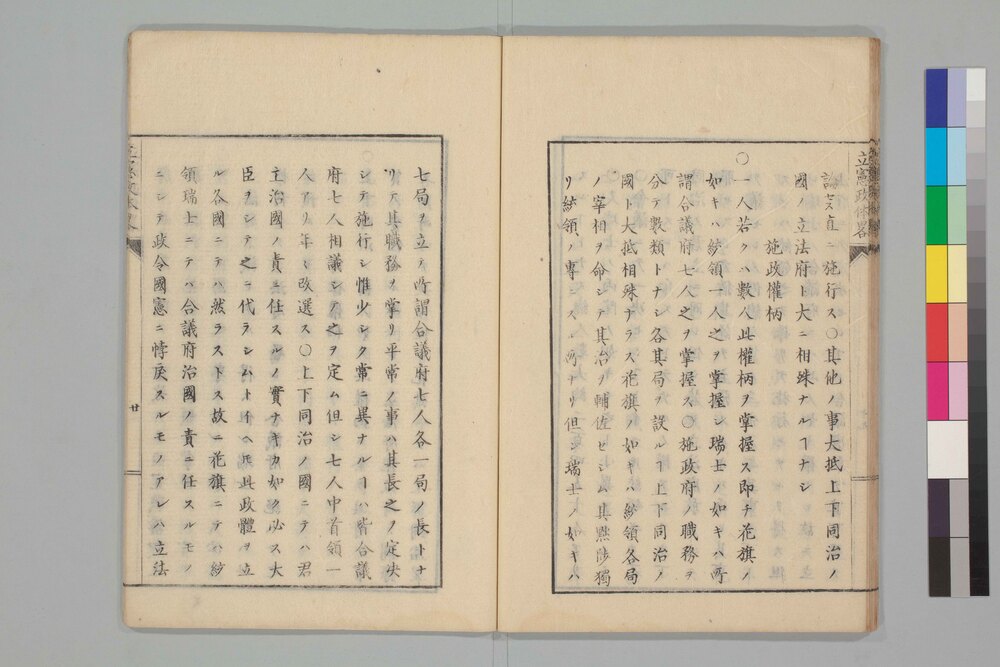 立憲政体略
論ニ及ハス直ニ施行ス〇其他ノ事大抵上下同治ノ
國ノ立法府ト大ニ相殊ナルヿナシ
施政權柄
〇一人若クハ數人此權柄ヲ掌握ス即チ花旗ノ
如キハ統領一人之ヲ掌握シ瑞士ノ如キハ所
謂合議府七人之ヲ掌握ス〇施政府ノ職務ヲ
分テ數類トナシ各其局ヲ設ルヿ上下同治ノ
國ト大抵相殊ナラス花旗ノ如キハ統領各局
ノ宰相ヲ命シテ其治ヲ輔佐セシム其黜陟獨
リ統領ノ專ニスル所ナリ但シ瑞士ノ如キハ
七局ヲ立テ所謂合議府七人各一局ノ長トナ
リテ其職務ヲ掌リ平常ノ事ハ其長之ノ定决
シテ施行シ惟少シク常ニ異ナルヿハ皆合議
府七人相議シテ之ヲ定ム但シ七人中首領一
人アリ年々改選ス〇上下同治ノ國ニテハ君
主治國ノ責ニ任スルノ實ナキカ如ク必ス大
臣ヲシテ之ニ代ラシムトイヘ𪜈此政體ヲ立
ル各國ニテハ然ラストス故ニ花旗ニテハ統
領瑞士ニテハ合議府治國ノ責ニ任スルモノ
ニシテ政令國憲ニ悖戻スルモノアレハ立法
廿